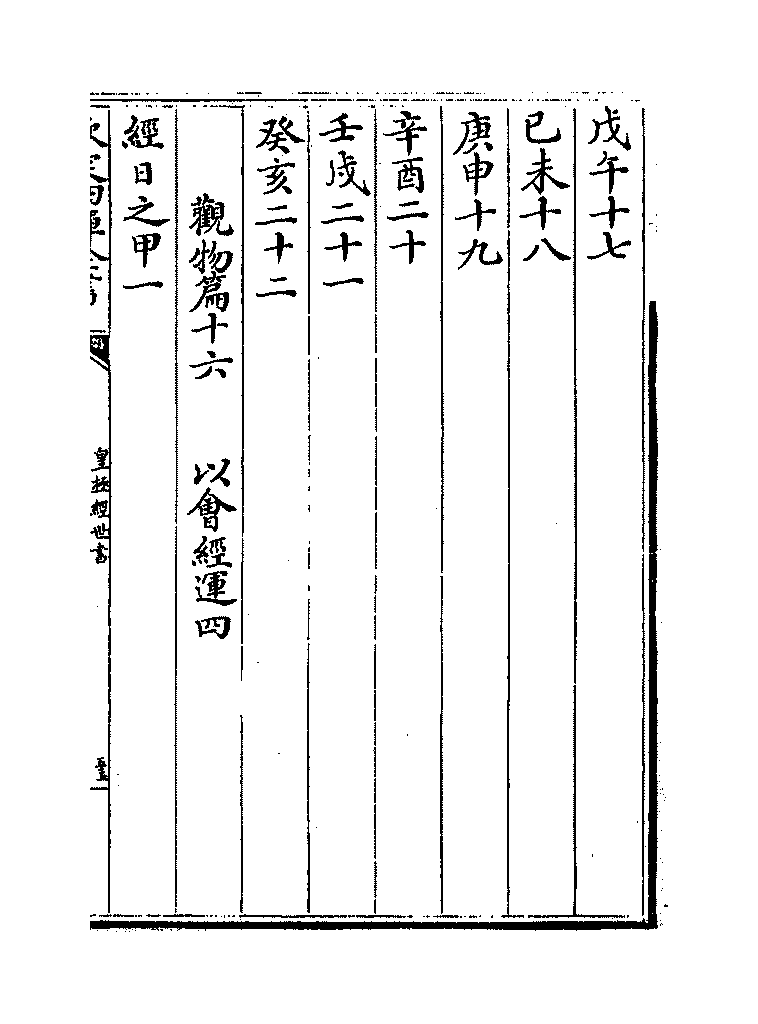 戊午十七
已未十八
庚申十九
辛酉二十
壬戌二十一
癸亥二十二
觀物篇十六　以會經運四
經日之甲一
皇極經世書